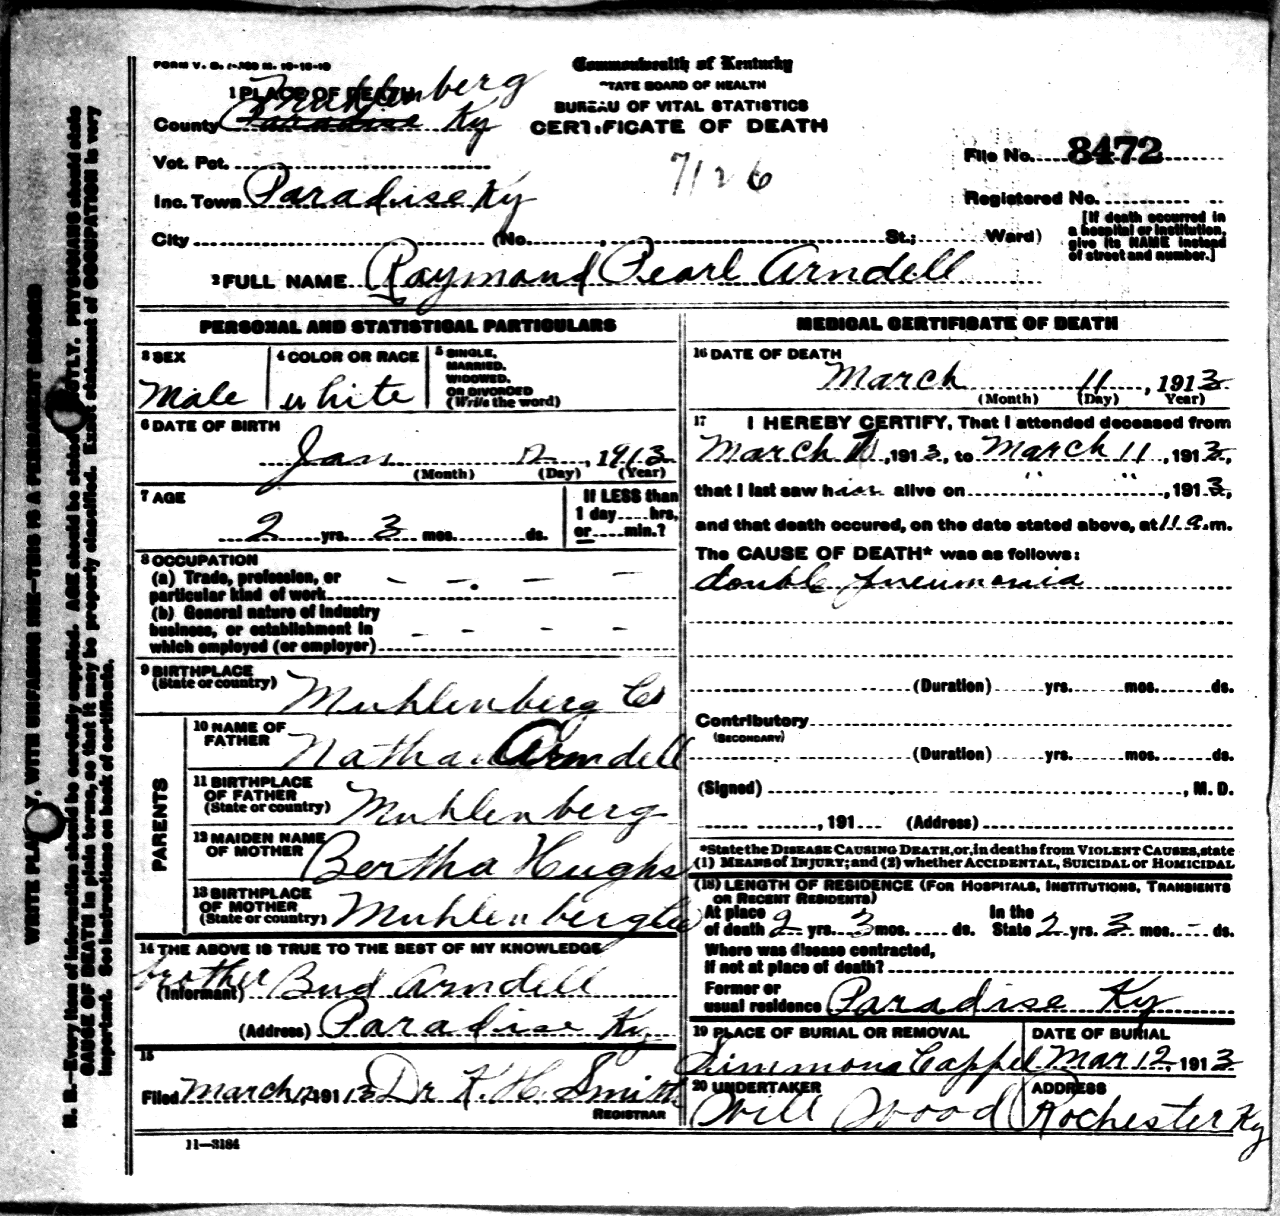 FORM V. S.
Commonwealth of Kentucky
STATE BOARD OF HEALTH
BUREAU OF VITAL STATISTICS
CERTIFICATE OF DEATH
1 PLACE OF DEATH
Muhlenberg
County Paradise Ky
Vot. Pct.
Inc. Town Paradise Ky
City (No. , St.; Ward)
7126
File No. 8472
Registered No.
[If death occurred in
a hospital or institution,
give its NAME instead
of street and number.]
2 FULL NAME Raymond Pearl Arndell
PERSONAL AND STATISTICAL PARTICULARS
3 SEX
Male
4 COLOR OR RACE
white
5 SINGLE,
MARRIED,
WIDOWED,
OR DIVORCED
(Write the word)
6 DATE OF BIRTH
Jan 2, 1913
(Month) (Day) (Year)
7 AGE
2 yrs. 3 mos. ds.
If LESS than
1 day hrs,
or min.?
8 OCCUPATION
(a) Trade, profession, or
particular kind of work
(b) General nature of industry
business, or establishment in
which employed (or employer)
9 BIRTHPLACE
(State or country) Muhlenberg Co
PARENTS
10 NAME OF
FATHER Nathan Arndell
11 BIRTHPLACE
OF FATHER
(State or country) Muhlenberg
12 MAIDEN NAME
OF MOTHER Bertha Hughs
13 BIRTHPLACE
OF MOTHER
(State or country) Muhlenberg Co
14 THE ABOVE IS TRUE TO THE BEST OF MY KNOWLEDGE
brother
(Informant) Bud Arndell
(Address) Paradise Ky
15
Filed March 12 1913 Dr K. H. Smith
REGISTRAR
11—3184
MEDICAL CERTIFICATE OF DEATH
16 DATE OF DEATH
March 11, 1913
(Month) (Day) Year)
17 I HEREBY CERTIFY, That I attended deceased from
March , 1913, to March 11, 1913,
that I last saw him alive on " ", 1913,
and that death occured, on the date stated above, at 11 a.m.
The CAUSE OF DEATH* was as follows:
double pneumonia
(Duration) yrs. mos. ds.
Contributory
(SECONDARY)
(Duration) yrs. mos. ds.
(Signed) , M. D.
, 191 (Address)
*State the DISEASE CAUSING DEATH, or, in deaths from VIOLENT CAUSES, state
(1) MEANS of INJURY; and (2) whether ACCIDENTAL, SUICIDAL or HOMICIDAL
(18) LENGTH OF RESIDENCE (FOR HOSPITALS, INSTITUTIONS, TRANSIENTS
OR RECENT RESIDENTS)
At place In the
of death 2 yrs. 3 mos. ds. State 2 yrs. 3 mos. - ds.
Where was disease contracted,
If not at place of death?
Former or
usual residence Paradise Ky
19 PLACE OF BURIAL OR REMOVAL
Simmons Cappel
DATE OF BURIAL
Mar 12, 1913
20 UNDERTAKER
Will Wood
ADDRESS
Rochester Ky
WRITE PLAINLY, WITH UNFADING INK—THIS IS A PERMANENT RECORD
N. B.—Every item of information should be carefully supplied. AGE should be stated EXACTLY. PHYSICIANS should state
CAUSE OF DEATH in plain terms, so that it may be properly classified. Exact statement of OCCUPATION is very
important. See instructions on back of certificate.